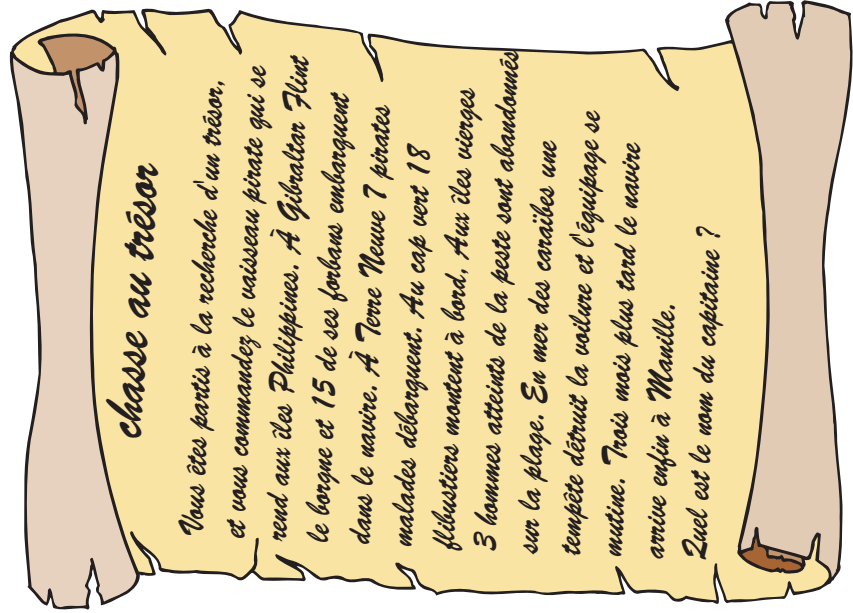 chasse au trésor
Vous êtes partis à la recherche d'un trésor,
et vous commandez le vaisseau pirate qui se
rend aux îles Philippines. À Gibraltar Flint
le borgne et 15 de ses forbans embarquent
dans le navire. À Terre Neuve 7 pirates
malades débarquent. Au cap vert 18
flibustiers montent à bord. Aux îles vierges
3 hommes atteints de la peste sont abandonnés
sur la plage. En mer des caraibes une
tempête détruit la voilure et l'équipage se
mutine. Trois mois plus tard le navire
arrive enfin à Manille.
Quel est le nom du capitaine ?